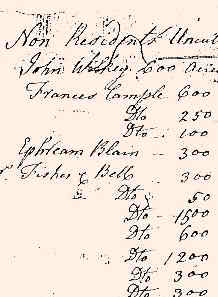 Non Residents Uncul
John Wilkey 600 Acres
Frances Cample 600
Dto 250
Dto 100
Ephream Blain - 300
Fisher & Bell 300
Dto 50
Dto - 1500
Dto 600
Dto 1200
Dto 300
Dto 300